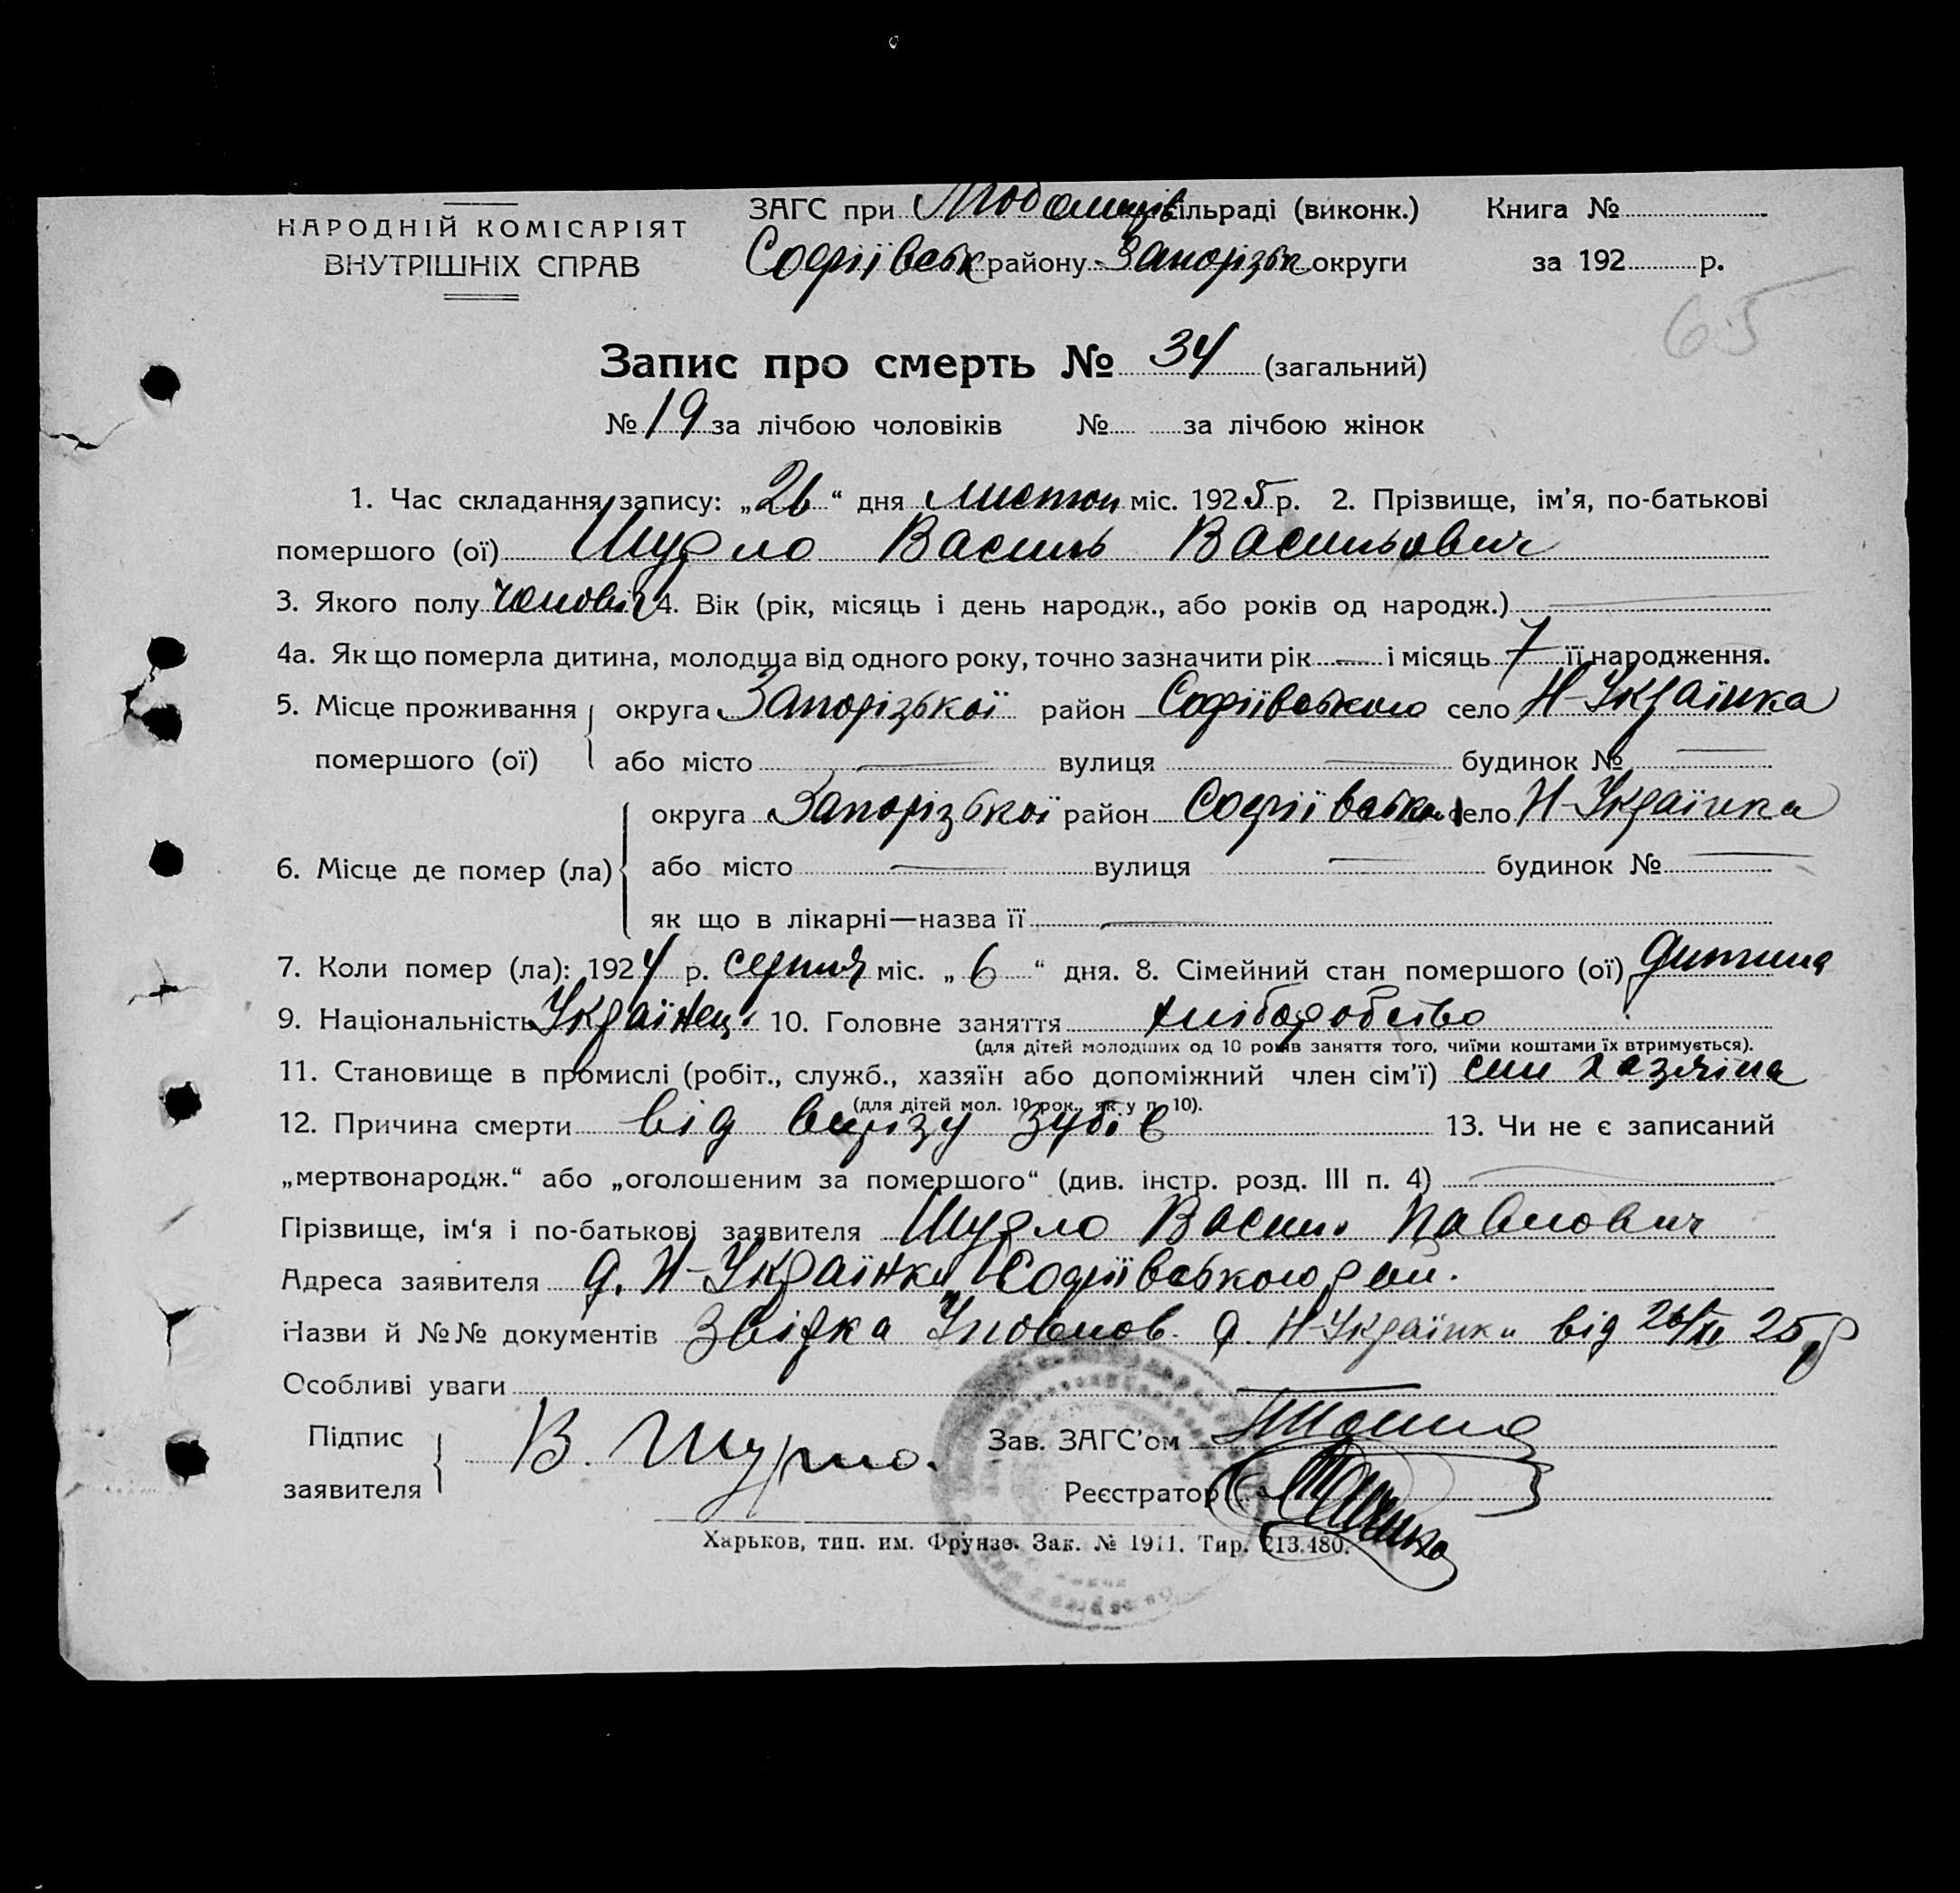 НАРОДНІЙ КОМІСАРІЯТ
ВНУТРІШНІХ СПРАВ
ЗАГС при сільраді (виконк.)
Софіївськ району Запорізьк округи
Книга №
за 192 р.
65
Запис про смерть № 34 (загальний)
№ 19 за лічбою чоловіків № за лічбою жінок
1. Час складання запису: „26“ дня листоп міс. 1925 р. 2. Прізвище, ім'я, по-батькові
помершого (ої) Шурло Василь Васильович
3. Якого полу чоловіч 4. Вік (рік, місяць і день народж., або років од народж.) —
4а. Як що померла дитина, молодща від одного року, точно зазначити рік — і місяць 7 її народження.
5. Місце проживання округа Запорізької район Софіївського село Н-Українка
помершого (ої) або місто — вулиця — будинок № —
округа Запорізької район Софіївськ село Н-Українка
6. Місце де помер (ла) або місто — вулиця — будинок № —
як що в лікарні—назва її —
7. Коли помер (ла): 1924 р. серпня міс. „6“ дня. 8. Сімейний стан помершого (ої) дитина
9. Національність Українец. 10. Головне заняття хліборобство
(для дітей молодших од 10 років заняття того, чиїми коштами їх втримується).
11. Становище в промислі (робіт., служб., хазяїн або допоміжний член сім'ї) син хазяїна
(для дітей мол. 10 рок., як у п. 10).
12. Причина смерти від вирізу зубів 13. Чи не є записаний
„мертвонародж.“ або „оголошеним за помершого“ (див. інстр. розд. III п. 4) —
Прізвище, ім'я і по-батькові заявителя Шурло Василь Павлович
Адреса заявителя д. Н-Українка Софіївського рай.
Назви й №№ документів Звідка Уповнов. д. Н-Українки від 26/XI 25 р
Особливі уваги
Підпис
заявителя
В. Шурло.
Зав. ЗАГС'ом
Реєстратор
Харьков, тип. им. Фрунзе. Зак. № 1911. Тир. 213.480.